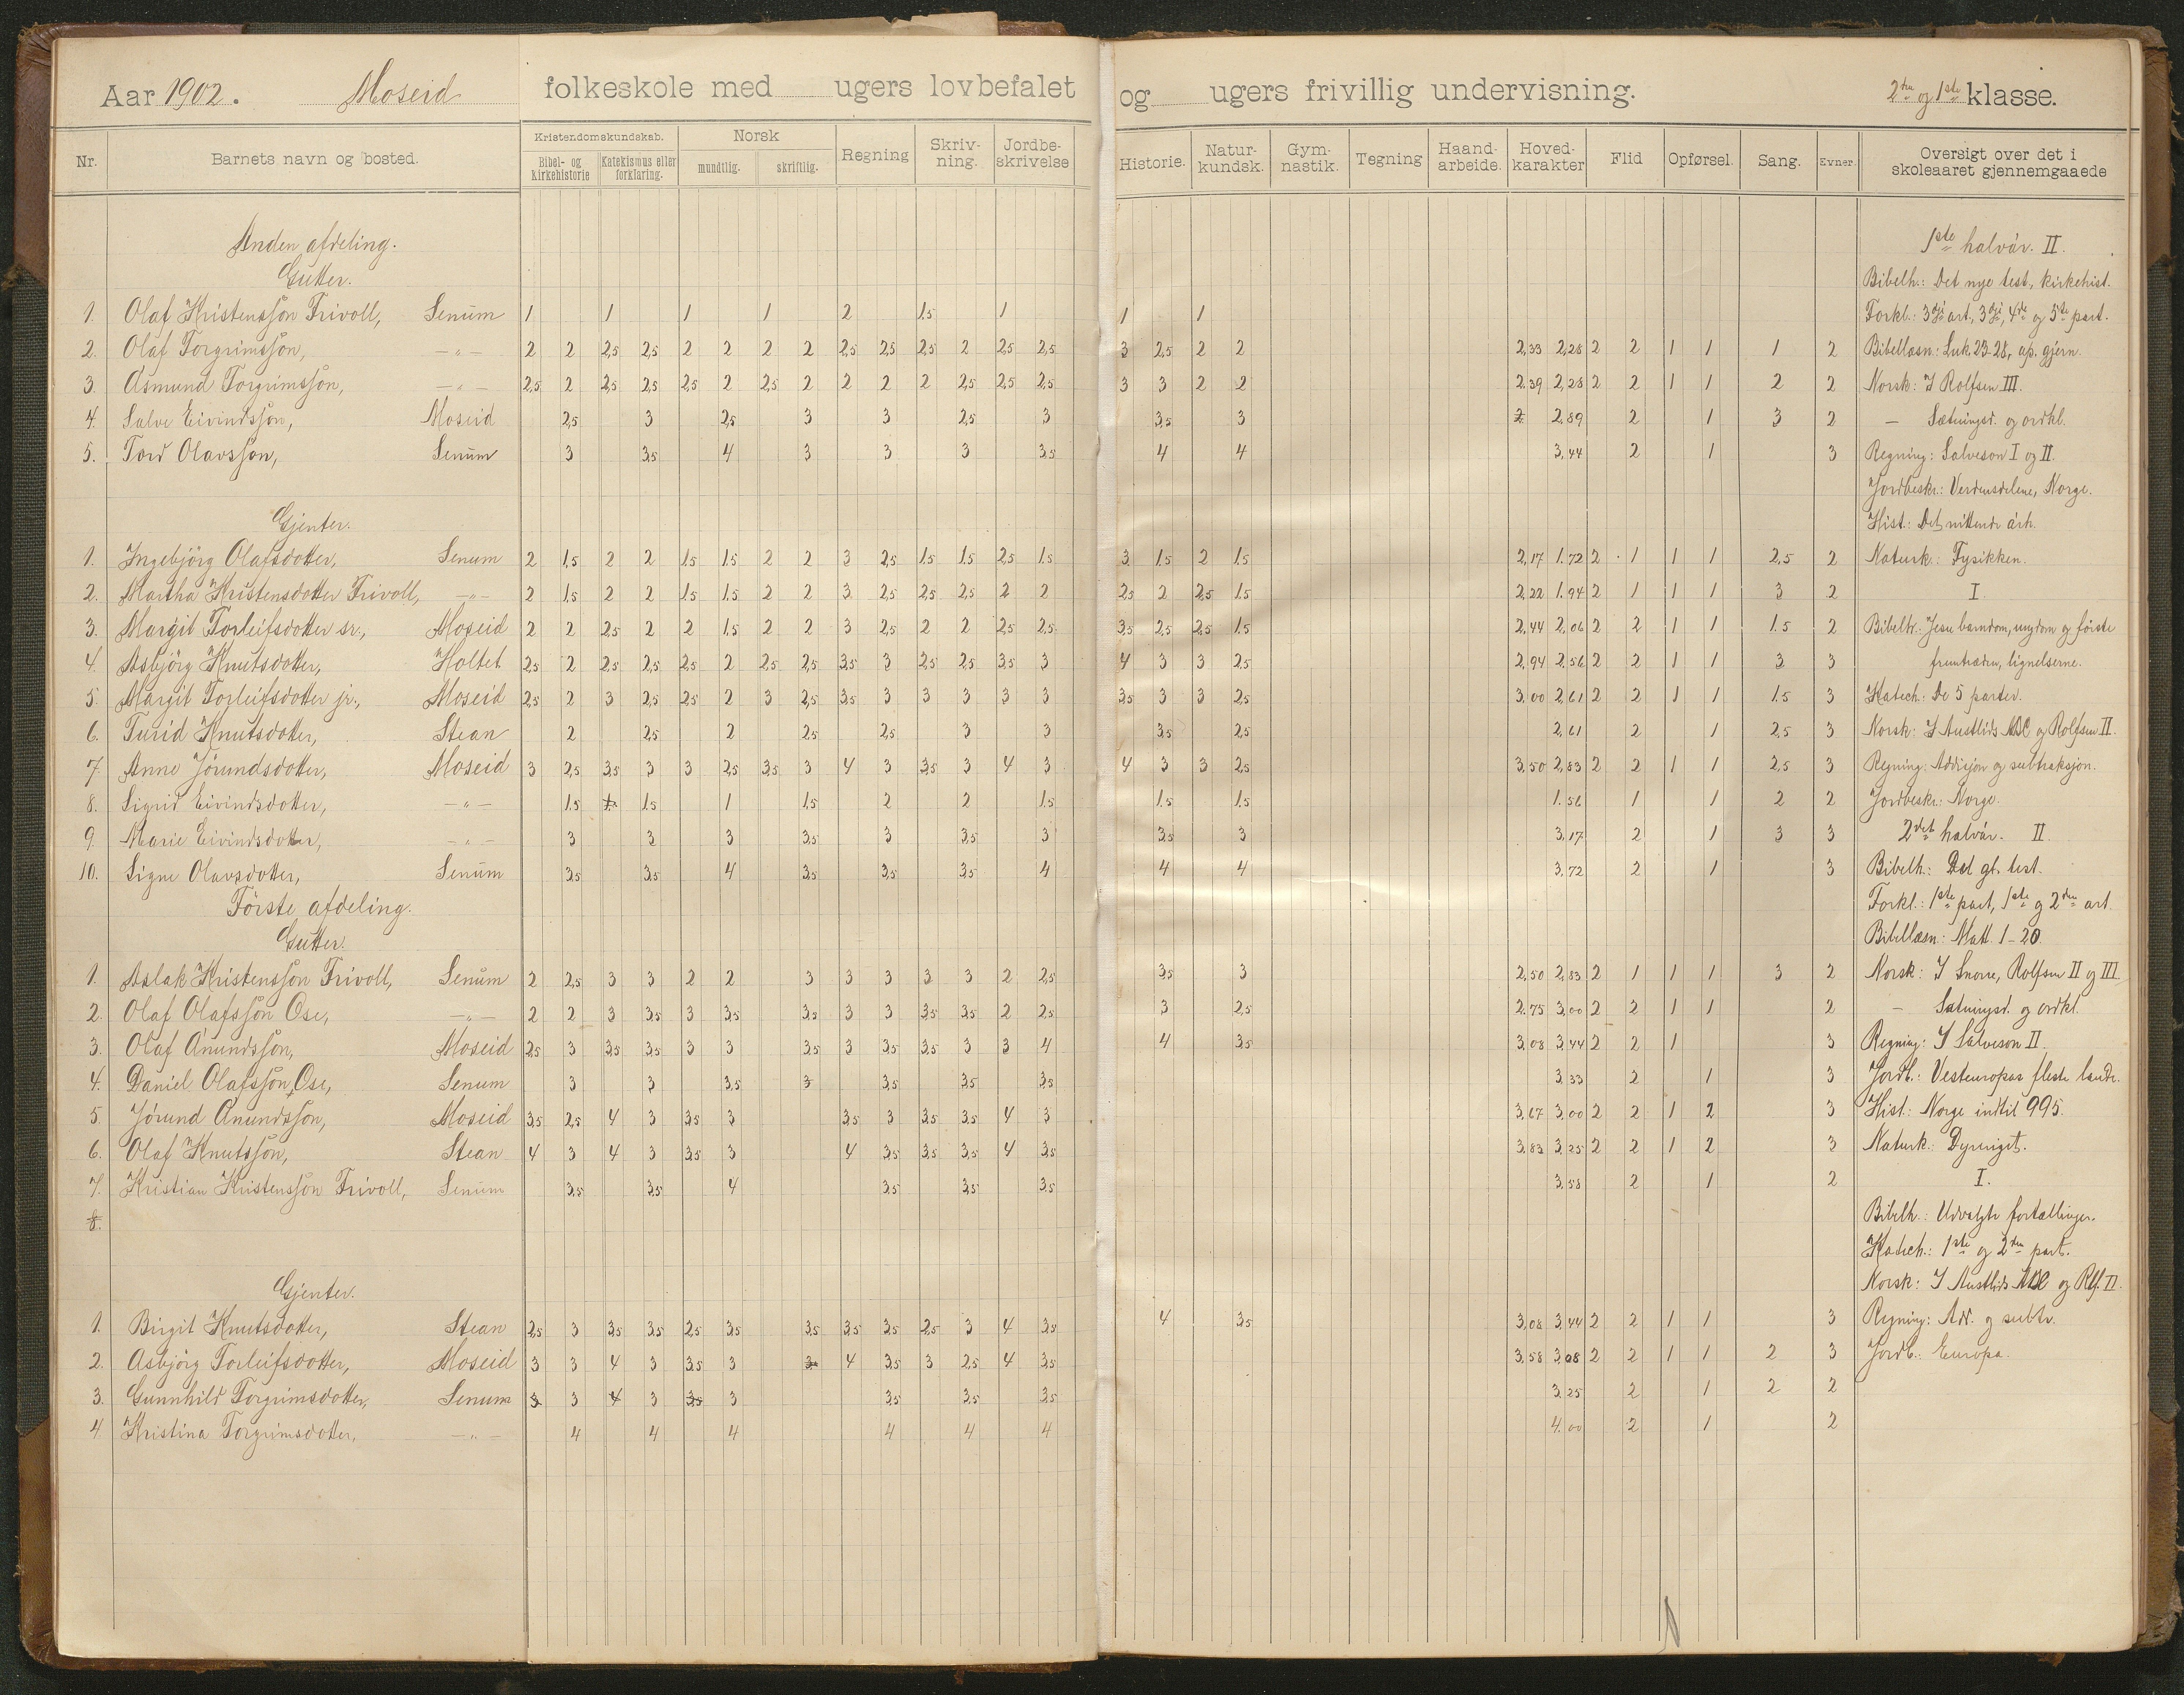 Aar 1902. Moseid folkeskole med ugers lovbefalet og ugers frivillig undervisning. 2den og 1ste klasse.
Nr. Barnets navn og bosted. Kristendomskundskab. Bibel- og kirkehistorie Katekismus eller forklaring. Norsk mundtlig. skriftlig. Regning Skriv-ning. Jordbe-skrivelse Historie. Natur-kundsk. Gym-nastik. Tegning Haand-arbeide. Hoved-karakter Flid Opførsel. Sang. Evner. Oversigt over det i skoleaaret gjennemgaaede
Anden afdeling. 1ste halvår. II.
Gutter. Bibelh.: Det nye test., kirkehist.
1. Olaf Kristensson Trivoll, Senum 1 1 1 1 2 1.5 1 1 1 Forkl.: 3dje art., 3dje, 4de og 5te part.
2. Olaf Torgrimsson, —„— 2 2 2,5 2,5 2 2 2 2 2,5 2,5 2,5 2 2,5 2,5 3 2,5 2 2 2,33 2,28 2 2 1 1 1 2 Bibellæsn.: Luk. 23-28, ap. gjern.
3. Asmund Torgrimsson, —„— 2,5 2 2,5 2,5 2,5 2 2,5 2 2 2 2 2,5 2,5 2,5 3 3 2 2 2.39 2,28 2 2 1 1 2 2 Norsk: I Rolfsen III.
4. Salve Eivindsson, Moseid 2,5 3 2,5 3 3 2,5 3 3,5 3 2 2,89 2 1 3 2 — Sætningsd. og ordkl.
5. Tord Olavsson, Senum 3 3,5 4 3 3 3 3,5 4 4 3,44 2 1 3 Regning: Salveson I og II.
Jordbeskr.: Verdensdelene, Norge.
Gjenter. Hist.: Det nittende årh.
1. Ingebjörg Olafsdotter, Senum 2 1,5 2 2 1,5 1,5 2 2 3 2,5 1,5 1,5 2,5 1,5 3 1,5 2 1,5 2,17 1.72 2 1 1 1 2,5 2 Naturk.: Fysikken.
2. Martha Kristensdotter Trivoll, —„— 2 1,5 2 2 1,5 1,5 2 2 3 2,5 2,5 2,5 2 2 2,5 2 2,5 1,5 2,22 1.94 2 1 1 1 3 2 I.
3. Margit Torleifsdotter sr., Moseid 2 2 2,5 2 2 1,5 2 2 3 2,5 2 2 2,5 2,5 3,5 2,5 2,5 1,5 2,44 2,06 2 2 1 1 1.5 2 Bibelh.: Jesu barndom, ungdom og förste
4. Asbjörg Knutsdotter, Holtet 2,5 2 2,5 2,5 2,5 2 2,5 2,5 3,5 3 2,5 2,5 3,5 3 4 3 3 2,5 2,94 2,56 2 2 1 1 3 3 fremtræden, lignelserne.
5. Margit Torleifsdotter jr., Moseid 2,5 2 3 2,5 2,5 2 3 2,5 3,5 3 3 3 3 3 3,5 3 3 2,5 3,00 2,61 2 2 1 1 1.5 3 Katech.: De 5 parter.
6. Turid Knutsdotter, Stean 2 2,5 2 2,5 2,5 3 3 3,5 2,5 2,61 2 1 2,5 3 Norsk: I Austlids ABC og Rolfsen II.
7. Anne Jörundsdotter, Moseid 3 2,5 3,5 3 3 2,5 3,5 3 4 3 3,5 3 4 3 4 3 3 2,5 3,50 2,83 2 2 1 1 2,5 3 Regning: Addisjon og subtraksjon.
8. Sigrid Eivindsdotter, —„— 1.5 1.5 1 1.5 2 2 1.5 1.5 1.5 1.56 1 1 2 2 Jordbeskr.: Norge.
9. Marie Eivindsdotter, —„— 3 3 3 3,5 3 3,5 3 3,5 3 3,17 2 1 3 3 2det halvår. II
10. Signe Olavsdotter, Senum 3,5 3,5 4 3,5 3,5 3,5 4 4 4 3,72 2 1 3 Bibelh.: Det gl. test.
Förste afdeling. Forkl.: 1ste part, 1ste og 2den art.
Gutter. Bibellæsn: Matt. 1-20.
1. Aslak Kristensson Trivoll, Senum 2 2,5 3 3 2 2 3 3 3 3 3 2 2,5 3,5 3 2,50 2,83 2 1 1 1 3 2 Norsk: I Snorre, Rolfsen II og III.
2. Olaf Olafsson Ose, —„— 2 2 3 3,5 3 3,5 3,5 3 3 3,5 3,5 2 2,5 3 2,5 2.75 3,00 2 2 1 1 2 — Sætningsd. og ordkl.
3. Olaf Ånundsson, Moseid 2,5 3 3,5 3,5 3 3 3,5 3 3,5 3,5 3 3 4 4 3,5 3,08 3,44 2 2 1 3 Regning: I Salveson II.
4. Daniel Olafsson Ose, Senum 3 3 3,5 3 3,5 3,5 3,5 3,33 2 1 3 Jordb.: Vesteuropas fleste lande.
5. Jörund Ånundsson, Moseid 3,5 2,5 4 3 3,5 3 3,5 3 3,5 3,5 4 3 3,67 3,00 2 2 1 2 3 Hist.: Norge indtil 995.
6. Olaf Knutsson, Stean 4 3 4 3 3,5 3 4 3,5 3,5 3,5 4 3,5 3,83 3,25 2 2 1 2 3 Naturk.: Dyreriget.
7. Kristian Kristensson Trivoll, Senum 3,5 3,5 4 3,5 3,5 3,5 3,58 2 1 2 I.
8. Bibelh.: Udvalgte fortællinger.
Katech.: 1ste og 2den part.
Gjenter. Norsk: I Austlids ABC og Rolf. II.
1. Birgit Knutsdotter, Stean 2,5 3 3,5 3,5 2,5 3,5 3,5 3,5 3,5 2,5 3 4 3,5 4 3,5 3,08 3,44 2 2 1 1 3 Regning: Add. og subtr.
2. Asbjörg Torleifsdotter, Moseid 3 3 4 3 3,5 3 3 4 3,5 3 2,5 4 3,5 3,58 3,08 2 2 1 1 2 3 Jordb.: Europa.
3. Gunnhild Torgrimsdotter, Senum 3 3 4 3 3,5 3 3,5 3,5 3,5 3,25 2 1 2 2
4. Kristina Torgrimsdotter, —„— 4 4 4 4 4 4 4.00 2 1 2